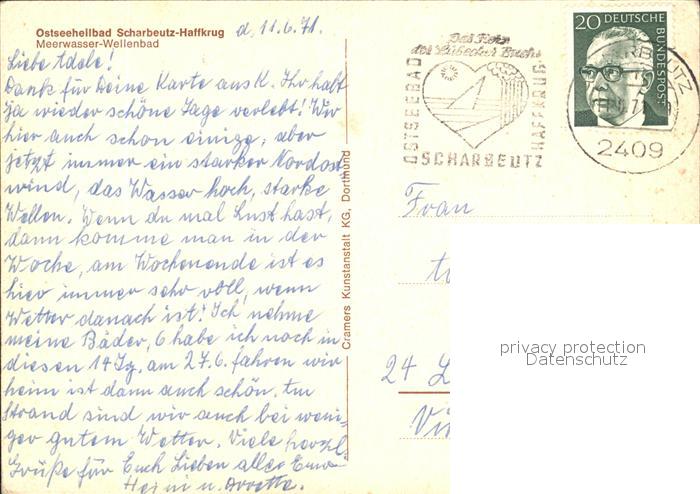 Ostseeheilbad Scharbeutz-Haffkrug d. 11.6.71.
Meerwasser-Wellenbad
Liebe Adele!
Dank für Deine Karte aus K. Ihr habt
ja wieder schöne Tage verlebt! Wir
hier auch schon einige, aber
jetzt immer ein starker Nordost
wind, das Wasser hoch, starke
Wellen. Wenn du mal Lust hast,
dann komme man in der
Woche, am Wochenende ist es
hier immer sehr voll, wenn
Wetter danach ist! Ich nehme
meine Bäder, 6 habe ich noch in
diesen 14 Tg, am 27.6. fahren wir
heim ist dann auch schön. Am
Strand sind wir auch bei weni-
ger gutem Wetter. Viele herzl.
Grüße für Euch Lieben alles Eure
Heini u.
Cramers Kunstanstalt KG, Dortmund
Das Herz
der Lübecker Bucht
OSTSEEBAD
HAFFKRUG
SCHARBEUTZ
20 DEUTSCHE
BUNDESPOST
2409
Frau
24 L
privacy protection
Datenschutz